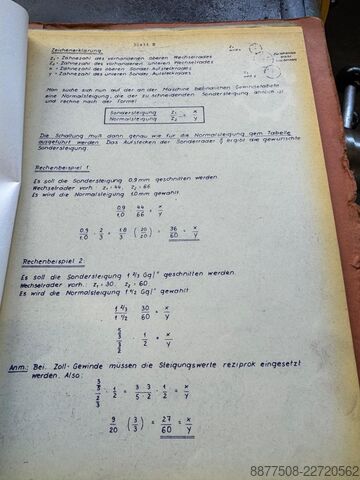 Blatt 2
Zeichenerklärung
z₁ = Zähnezahl des vorhandenen oberen Wechselrades
z₂ = Zähnezahl des vorhandenen unteren Wechselrades
x = Zähnezahl des oberen Sonder-Aufsteckrades
y = Zähnezahl des unteren Sonder-Aufsteckrades
Man suche sich nun auf der an der Maschine befindlichen Gewindetabelle
eine Normalsteigung, die der zu schneidenden Sondersteigung ähnlich ist
und rechne nach der Formel
Sondersteigung / Normalsteigung · z₁ / z₂ = x / y
Die Schaltung muß dann genau wie für die Normalsteigung gem. Tabelle
ausgeführt werden. Das Aufstecken der Sonderräder ergibt die gewünschte
Sondersteigung.
Rechenbeispiel 1
Es soll die Sondersteigung 0,9 mm geschnitten werden.
Wechselräder vorh.: z₁ = 44, z₂ = 66
Es wird die Normalsteigung 1,0 mm gewählt.
0,9 / 1,0 · 44 / 66 = x / y
0,9 / 1,0 · 2 / 3 = 1,8 / 3 (20 / 20) = 36 / 60 = x / y
Rechenbeispiel 2:
Es soll die Sondersteigung 1 2/3 Gg/" geschnitten werden.
Wechselräder vorh.: z₁ = 30, z₂ = 60
Es wird die Normalsteigung 1 1/2 Gg/" gewählt.
1 2/3 / 1 1/2 · 30 / 60 = x / y
5/3 / 3/2 · 1 / 2 = x / y
Anm.: Bei Zoll-Gewinde müssen die Steigungswerte reziprok eingesetzt
werden. Also:
3/5 / 2/3 · 1 / 2 = 3 · 3 / 5 · 2 · 1 / 2 = x / y
9 / 20 (3 / 3) = 27 / 60 = x / y
8877508-22720562